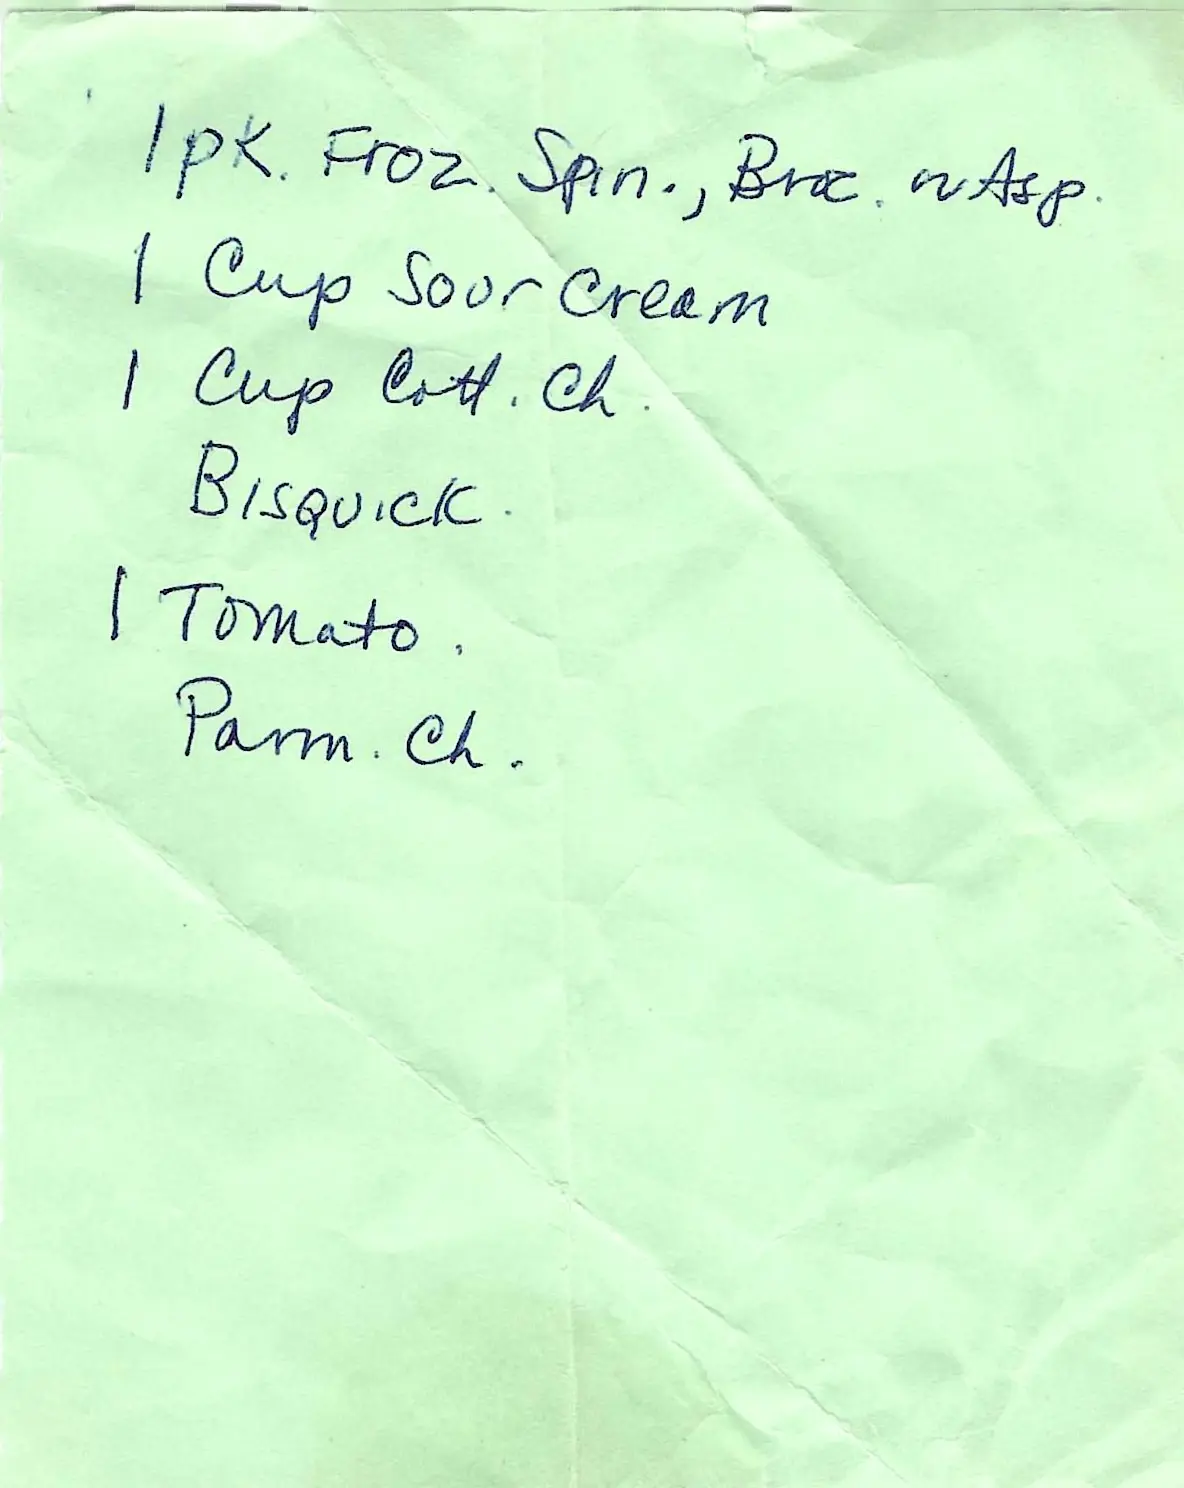 1 pk. Froz. Spin., Broc. or Asp.
1 Cup Sour Cream
1 Cup Cott. Ch.
Bisquick.
1 Tomato.
Parm. Ch.